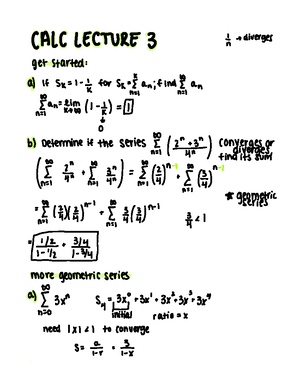 CALC LECTURE 3
1/n → diverges
get started:
a) If S_k = 1 - 1/k for S_k = Σ_{n=1}^{k} a_n; find Σ_{n=1}^{∞} a_n
Σ_{n=1}^{∞} a_n = lim_{k→∞} (1 - 1/k) = 1
↓
0
b) Determine if the series Σ_{n=1}^{∞} (2^n + 3^n / 4^n) converges or diverges find its sum
(Σ_{n=1}^{∞} 2^n/4^n + Σ_{n=1}^{∞} 3^n/4^n) = Σ_{n=1}^{∞} (2/4)^{n-1} + Σ_{n=1}^{∞} (3/4)^{n-1}
* geometric series
= Σ_{n=1}^{∞} (2/4)(2/4)^{n-1} + Σ_{n=1}^{∞} 3/4 (3/4)^{n-1}
3/4 < 1
= 1/2 / 1-1/2 + 3/4 / 1-3/4
more geometric series
a) Σ_{n=0}^{∞} 3x^n
S_4 = 3x^0 + 3x^1 + 3x^2 + 3x^3 + 3x^4
initial
ratio = x
need |x| < 1 to converge
S = a/1-r = 3/1-x